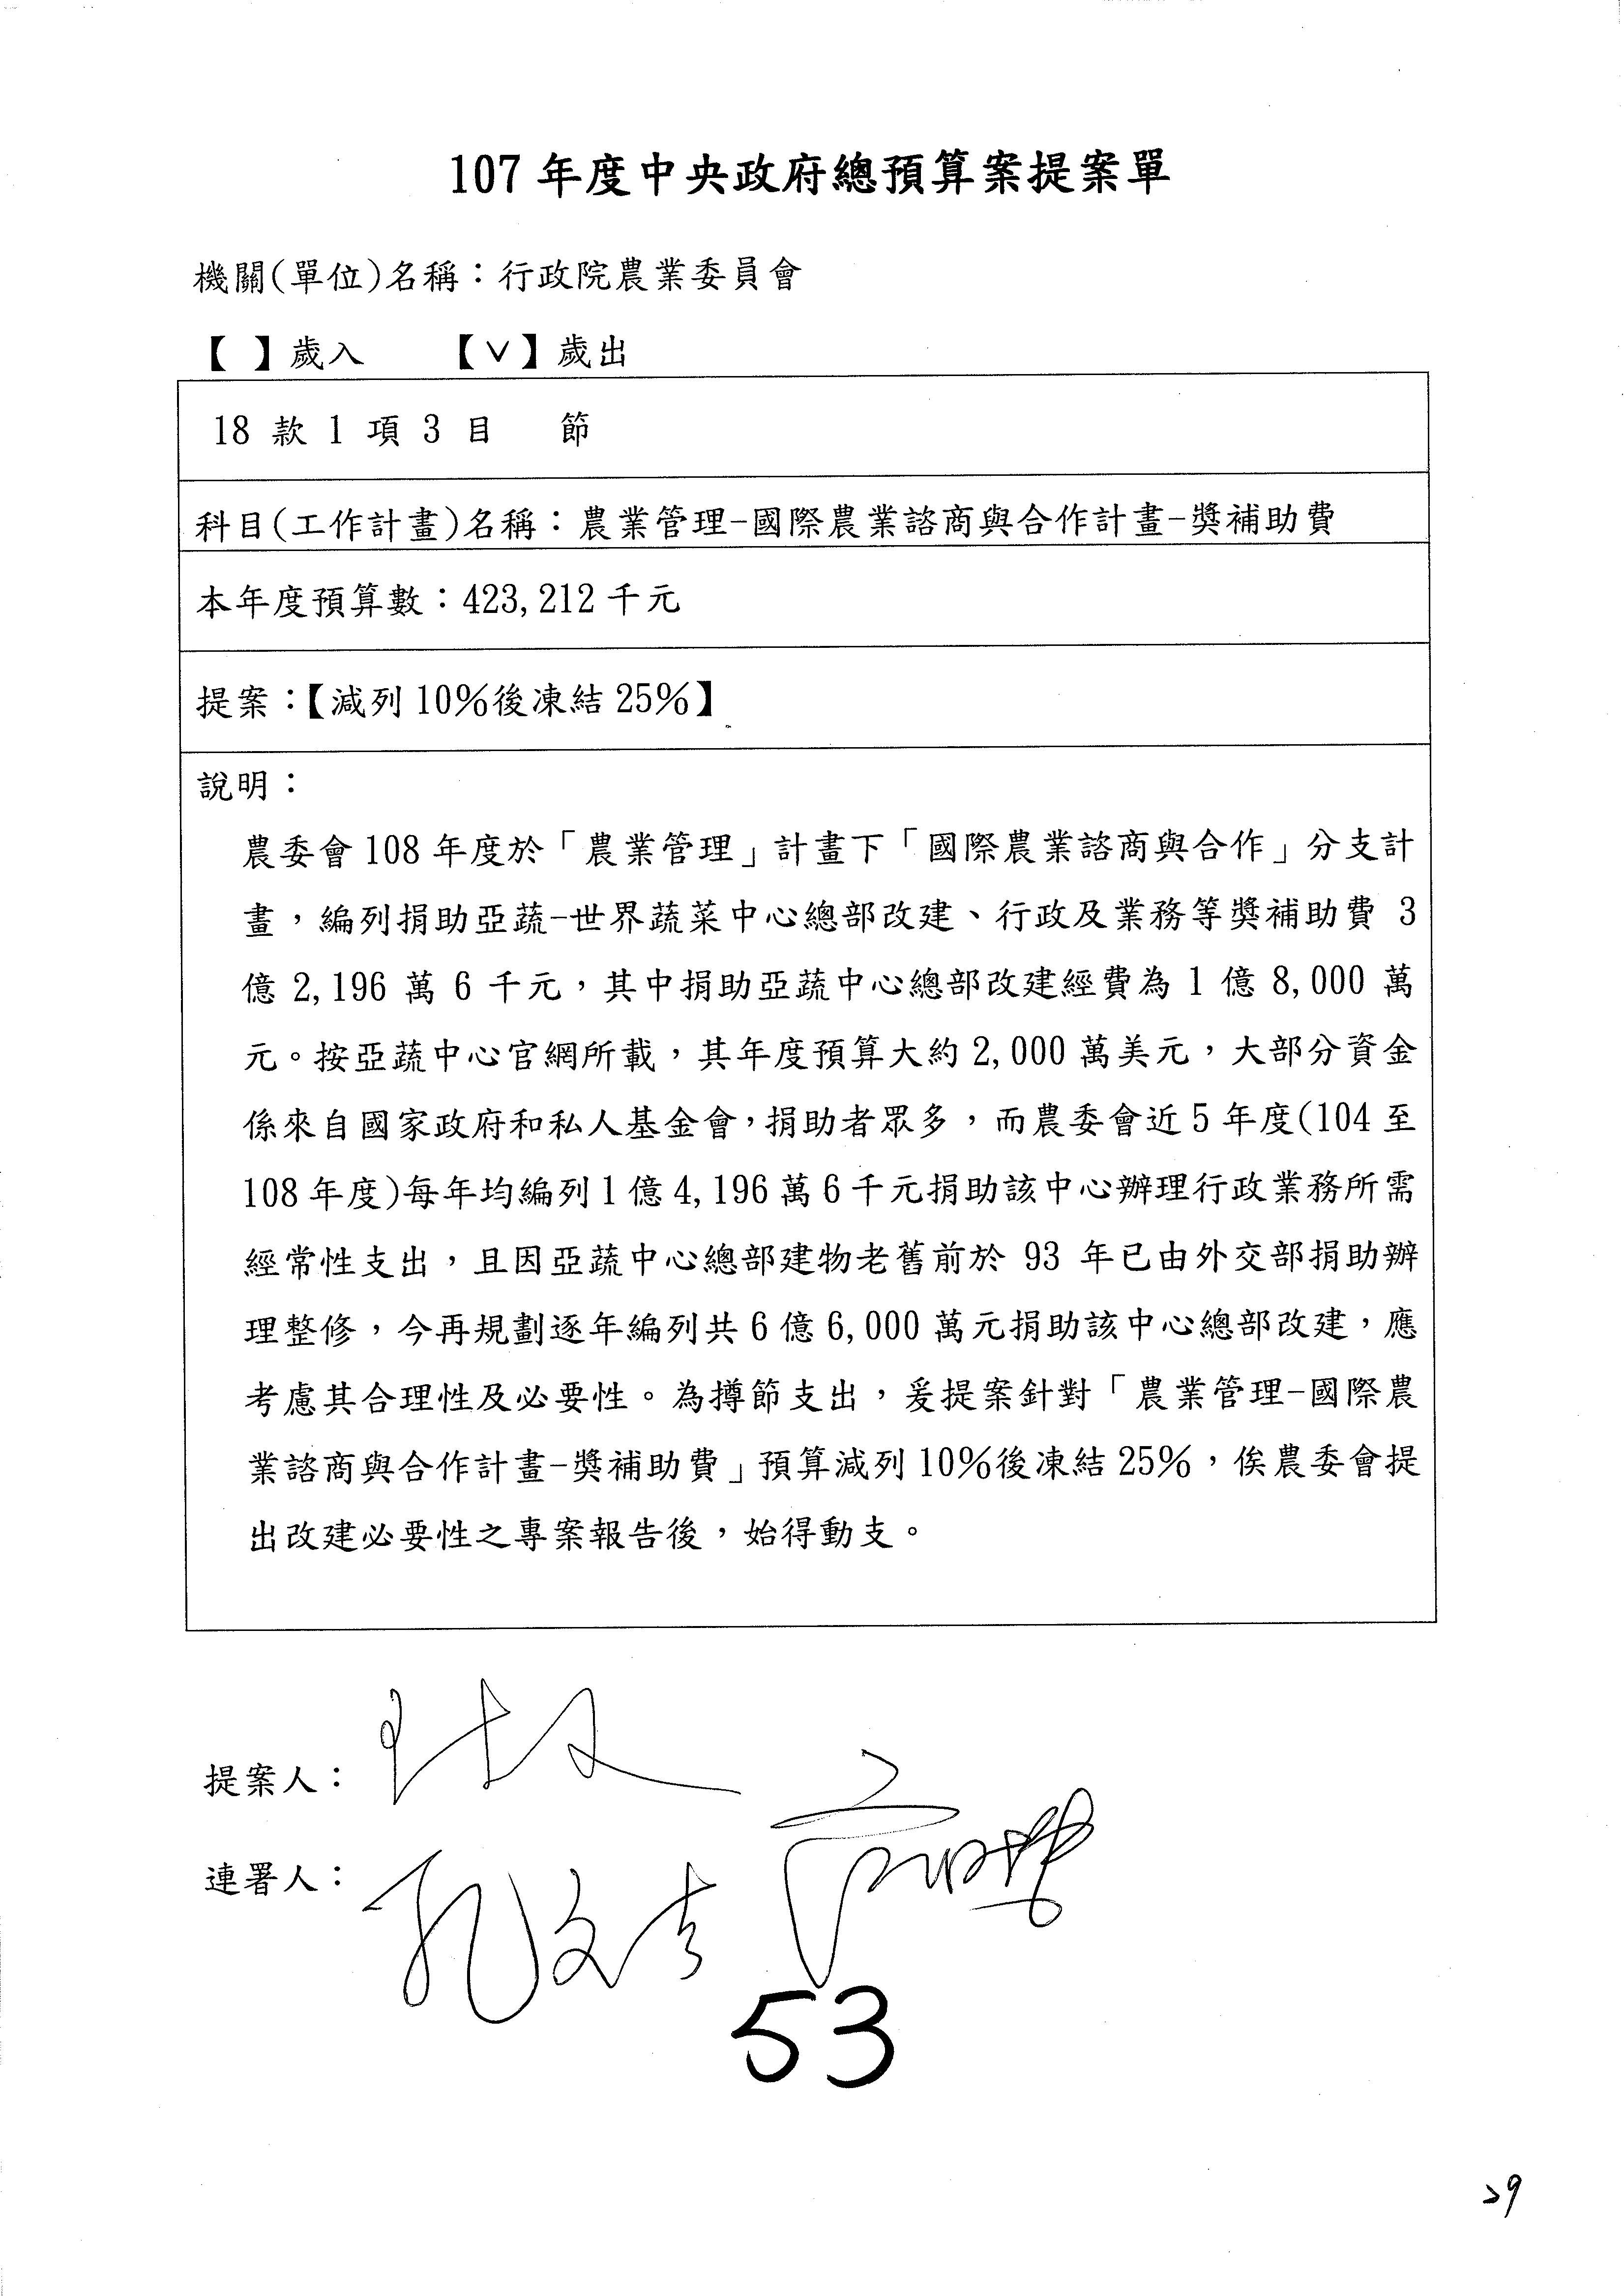 107 年度中央政府總預算案提案單
機關(單位)名稱：行政院農業委員會
【 】歲入 【∨】歲出
18 款 1 項 3 目 節
科目(工作計畫)名稱：農業管理-國際農業諮商與合作計畫-獎補助費
本年度預算數：423,212 千元
提案：【減列 10%後凍結 25%】
說明：
農委會 108 年度於「農業管理」計畫下「國際農業諮商與合作」分支計
畫，編列捐助亞蔬-世界蔬菜中心總部改建、行政及業務等獎補助費 3
億 2,196 萬 6 千元，其中捐助亞蔬中心總部改建經費為 1 億 8,000 萬
元。按亞蔬中心官網所載，其年度預算大約 2,000 萬美元，大部分資金
係來自國家政府和私人基金會，捐助者眾多，而農委會近 5 年度(104 至
108 年度)每年均編列 1 億 4,196 萬 6 千元捐助該中心辦理行政業務所需
經常性支出，且因亞蔬中心總部建物老舊前於 93 年已由外交部捐助辦
理整修，今再規劃逐年編列共 6 億 6,000 萬元捐助該中心總部改建，應
考慮其合理性及必要性。為撙節支出，爰提案針對「農業管理-國際農
業諮商與合作計畫-獎補助費」預算減列 10%後凍結 25%，俟農委會提
出改建必要性之專案報告後，始得動支。
提案人：
連署人：孔文吉
53
29